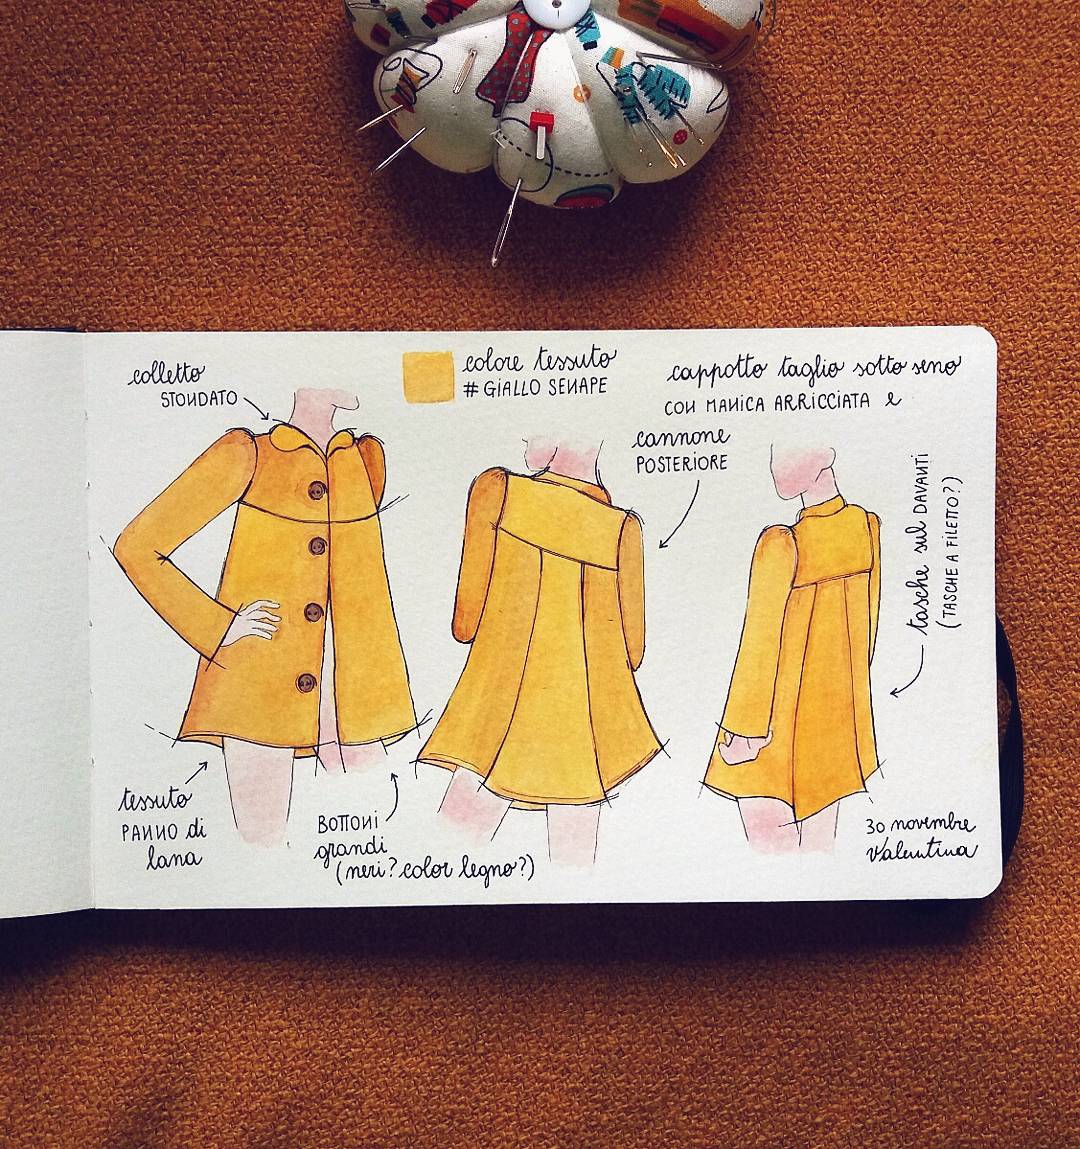 colletto
STONDATO
colore tessuto
# GIALLO SENAPE
cappotto taglio sotto seno
CON MANICA ARRICCIATA e
cannone
POSTERIORE
tasche sul DAVANTI
(TASCHE A FILETTO?)
tessuto
PANNO di
lana
BOTTONI
grandi
(neri? color legno?)
30 novembre
Valentina